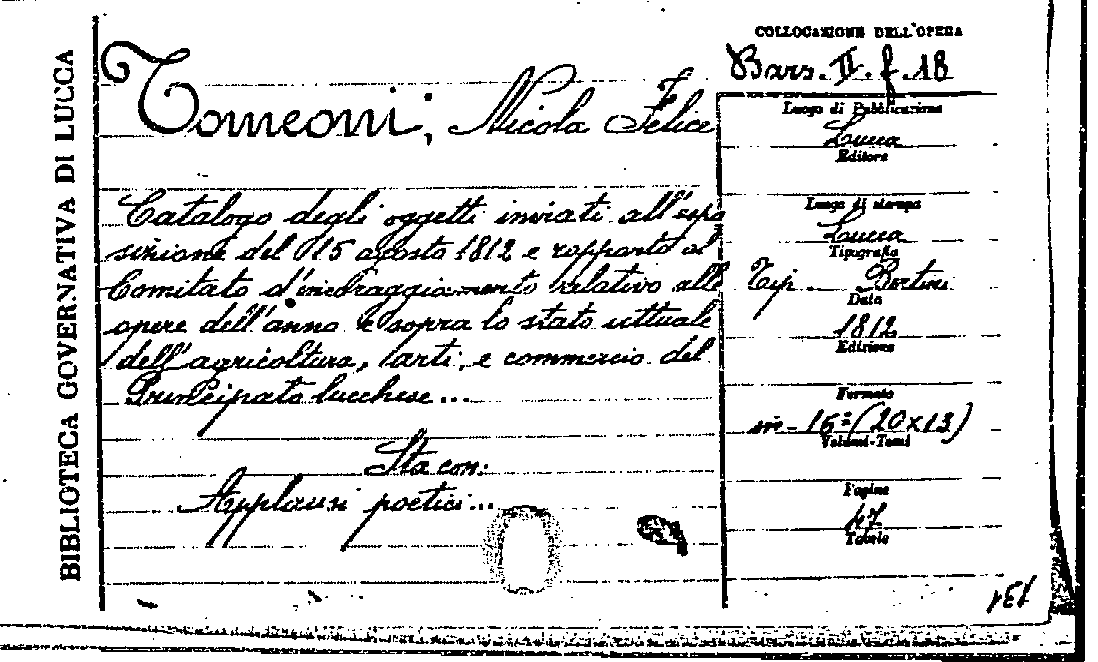 BIBLIOTECA GOVERNATIVA DI LUCCA
Tomeoni, Nicola Felice
Catalogo degli oggetti inviati all'espo
sizione del 15 agosto 1812 e rapporto al
Comitato d'incoraggiamento relativo alle
opere dell'anno e sopra lo stato attuale
dell'agricoltura, arti, e commercio del
Principato lucchese...
Sta con:
Applausi poetici...
COLLOCAZIONE DELL'OPERA
Bars. II. f. 18
Luogo di Pubblicazione
Lucca
Editore
Luogo di stampa
Lucca
Tipografia
Tip. Bertini
Data
1812
Edizione
Formato
in-16° (20x13)
Volumi-Tomi
Pagine
47
Tavole